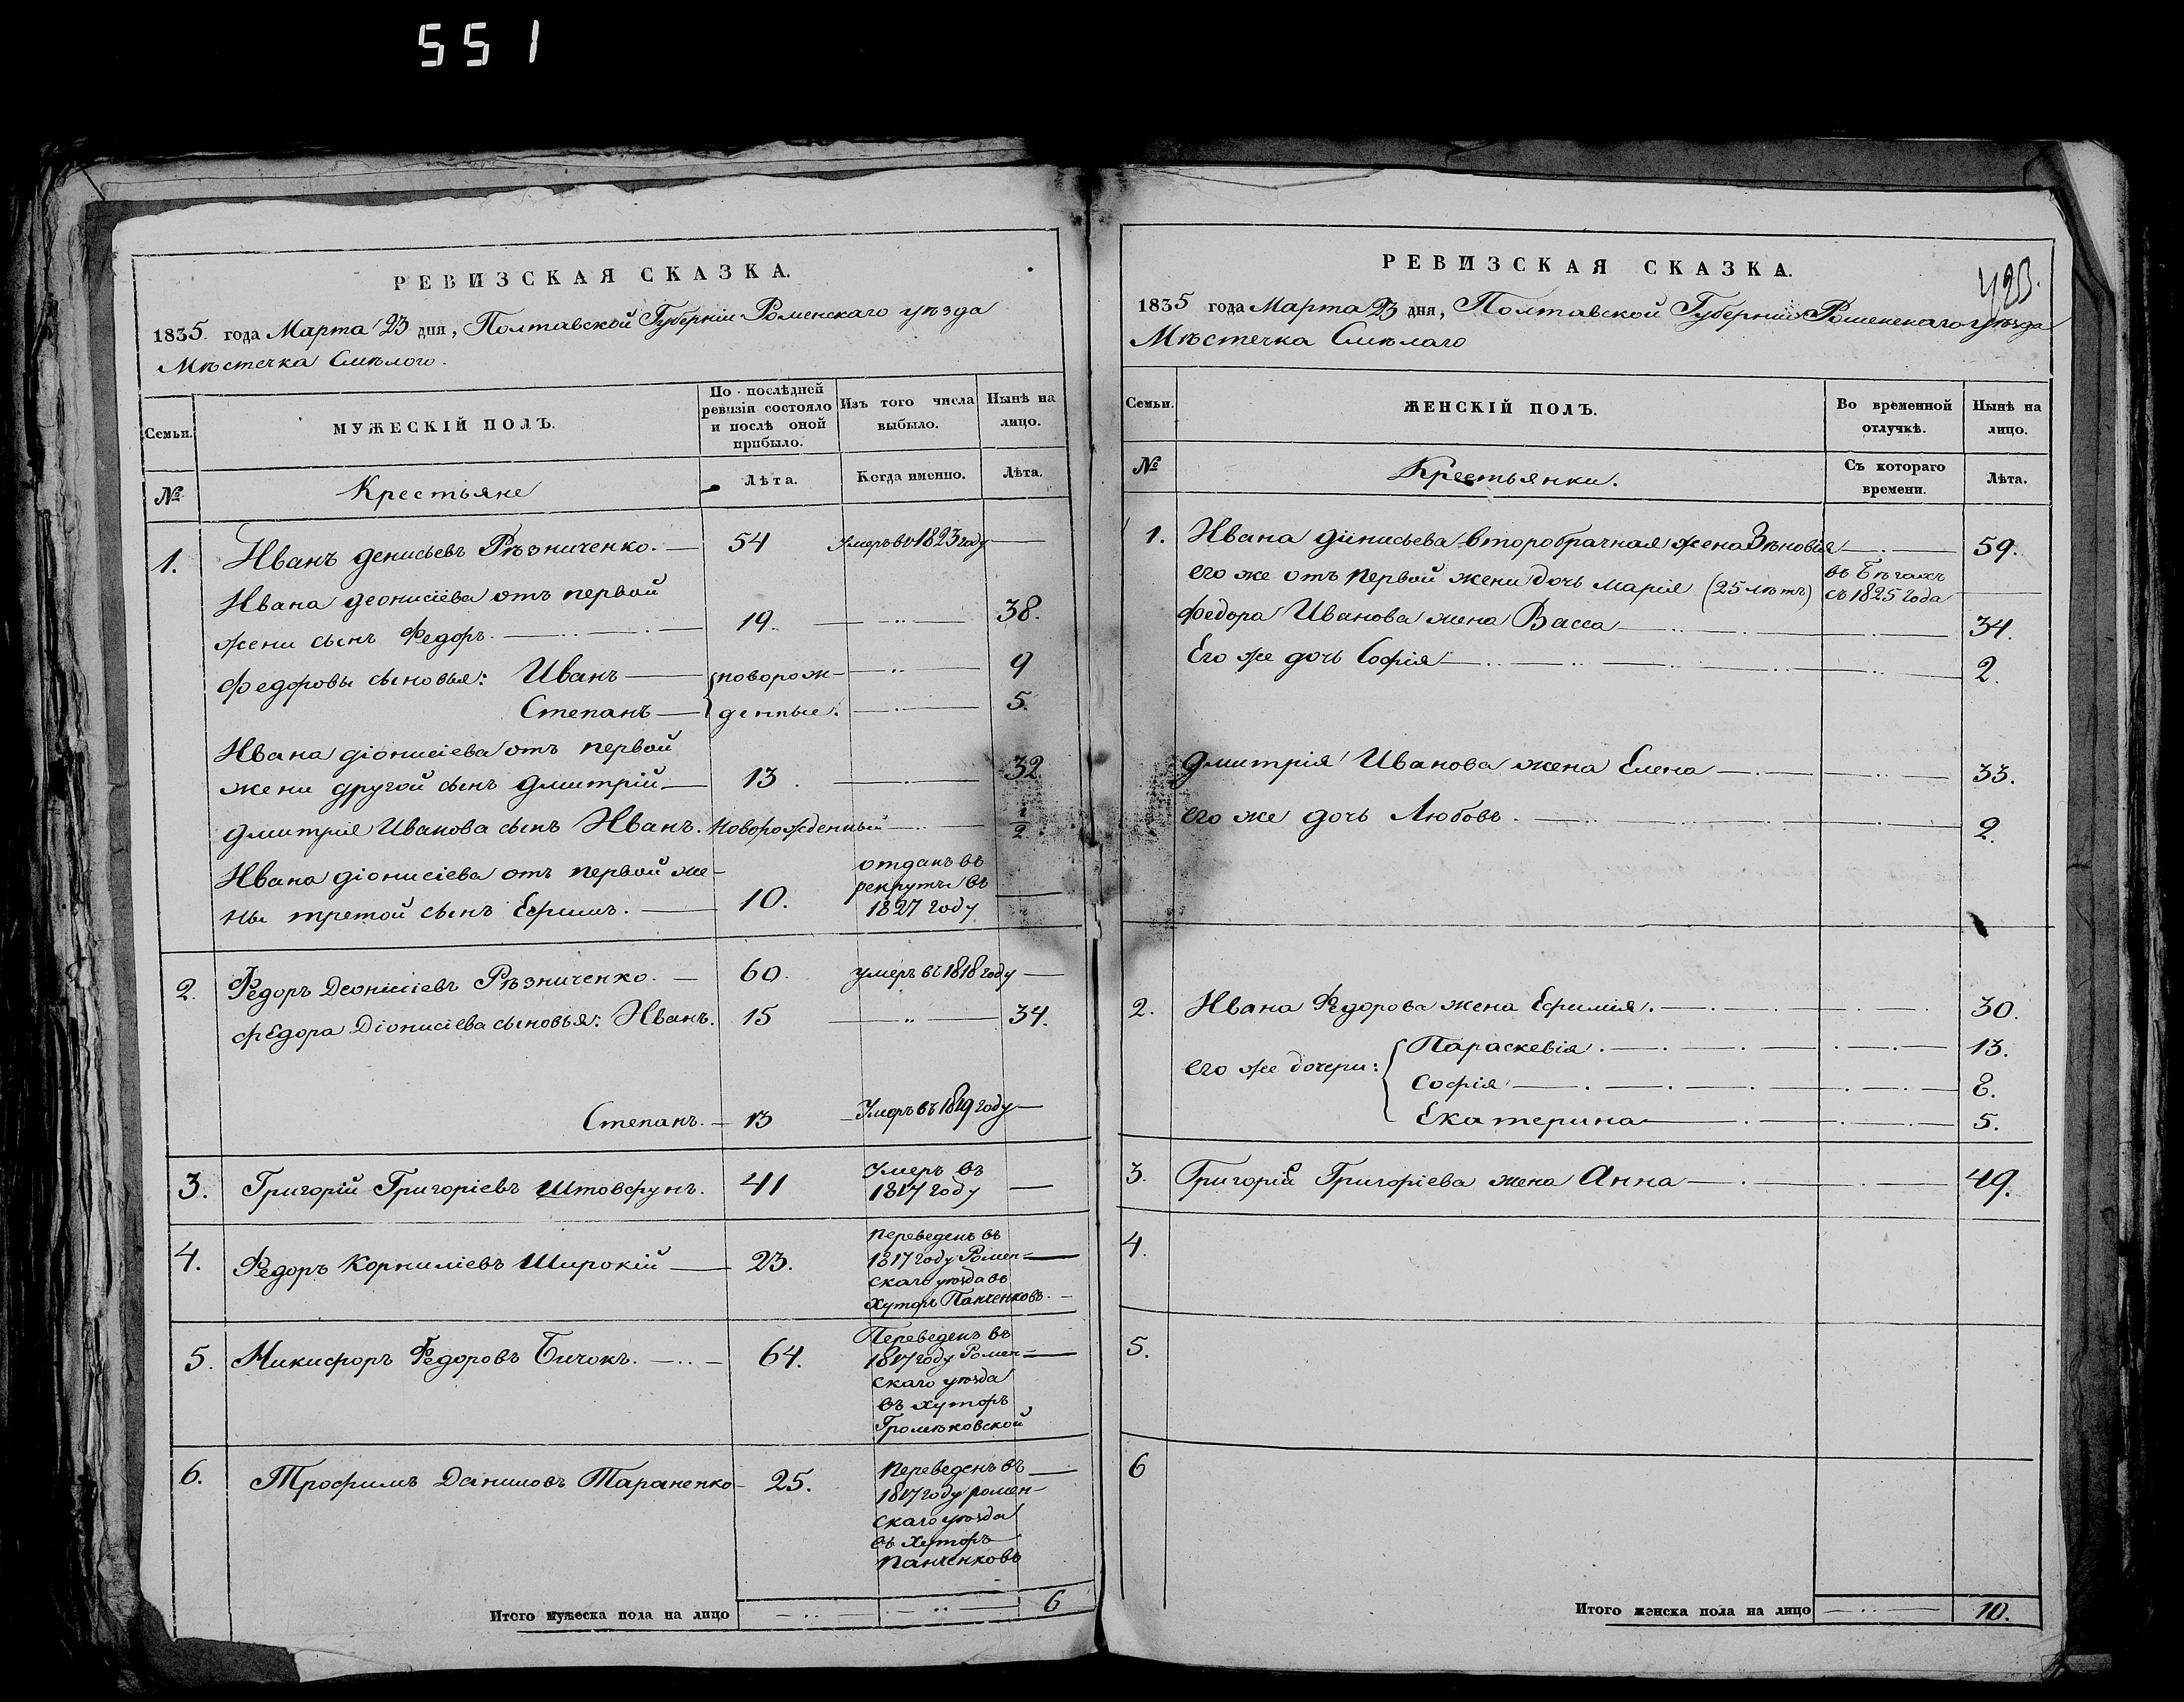 551
РЕВИЗСКАЯ СКАЗКА.
1835. года Марта 23 дня, Полтавской Губерніи Роменскаго уѣзда
Мѣстечка Смѣлого.
Семьи.
МУЖЕСКІЙ ПОЛЪ.
По послѣдней ревизіи состояло и послѣ оной прибыло.
Изъ того числа выбыло.
Нынѣ на лицо.
№
Крестьяне
Лѣта.
Когда именно.
Лѣта.
1. Иванъ денисьевъ Рѣзниченко. — 54 Умеръ въ 1823 году —
Ивана деонисіева отъ первой
жени сынъ Федоръ. — 19. — 38.
Федоровы сыновья: Иванъ — новорож- — 9
Степанъ — денные. — 5.
Ивана діонисіева отъ первой
жени другой сынъ дмитрій — 13. — 32
дмитрія Иванова сынъ Иванъ. Новорожденный — 1/2
Ивана діонисіева отъ первой же-
ны третой сынъ Ефимъ. — 10. отданъ въ
рекруты въ
1827 году —
2. Федоръ Деонисіевъ Рѣзниченко. — 60. умеръ въ 1818 году —
Федора Діонисіева сыновья: Иванъ. 15 — 34.
Степанъ. — 13 Умеръ въ 1819 году —
3. Григорій Григоріевъ Штовфунъ. 41 Умеръ въ
1817 году —
4. Федоръ Корниліевъ Широкій — 23. переведенъ въ
1817 году Ромен=
скаго уѣзда въ
Хуторъ Панченковъ. —
5. Никифоръ Федоровъ Бичокъ. — 64. Переведенъ въ
1817 году Ромен=
скаго уѣзда
въ хуторъ
Громѣковской
6. Трофимъ Даниловъ Тараненко — 25. Переведенъ въ —
1817 году ромен-
скаго уѣзда
въ Хуторъ
Панченковъ
Итого мужеска пола на лицо — 6
РЕВИЗСКАЯ СКАЗКА.
1835 года Марта 23 дня, Полтавской Губерніи Роменскаго уѣзда
Мѣстечка Смѣлаго
Семьи.
ЖЕНСКІЙ ПОЛЪ.
Во временной отлучкѣ.
Нынѣ на лицо.
№
Крестьянки.
Съ котораго времени.
Лѣта.
1. Ивана діинисьева второбрачная жена Зѣновія — 59.
его же отъ первой жени дочь марія (25 лѣтъ) въ бѣгахъ
съ 1825 года —
Федора Иванова жена Васса — 34.
Его же дочь Софія — 2.
дмитрія Иванова жена Елена — 33.
его же дочь Любовь. — 2.
2. Ивана Федорова жена Ефимія. — 30.
его же дочери: Параскевія. — 13.
Софія — 8.
Екатерина — 5.
3. Григорій Григоріева жена Анна — 49.
4.
5.
6
Итого женска пола на лицо — 10.